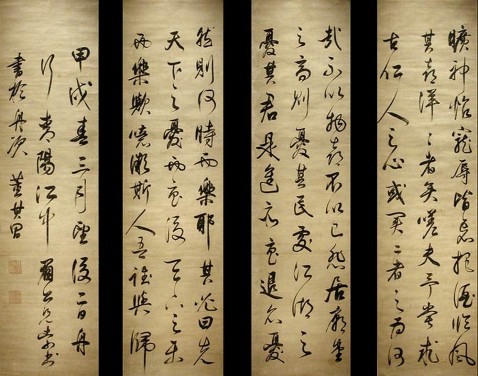 曠神怡寵辱皆忘把酒臨風
其喜洋〻者矣嗟夫予嘗求
古仁人之心或異二者之為何
哉不以物喜不以己悲居廟堂
之高則憂其民處江湖之
憂其君是進亦憂退亦憂
然則何時而樂耶其必曰先
天下之憂而憂後天下之樂
而樂歟噫微斯人吾誰與歸
甲戌春三月望後二日舟
行青陽江中
書於舟次 董其昌